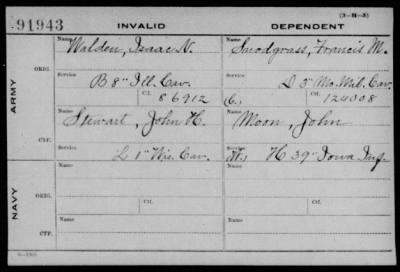 (3-H-3)
91943 INVALID DEPENDENT
ARMY
ORIG.
Name Walden, Isaac N. Name Snodgrass, Francis M.
Service B 8" Ill. Cav. Service D 5" Mo. Mil. Cav.
Ctf. 86912 (C.) Ctf. 124008
CTF.
Name Stewart, John H. Name Moon, John
Service L 1" Wis. Cav. Service H 39" Iowa Inf.
NAVY
ORIG.
Name Name
Service Service
Ctf. Ctf.
CTF.
Name Name